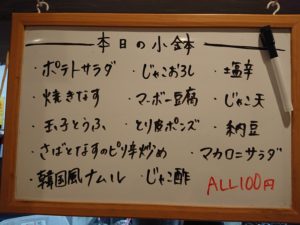 本日の小鉢
・ポテトサラダ ・じゃこおろし ・塩辛
・焼きなす ・マーボー豆腐 ・じゃこ天
・玉子とうふ ・とり皮ポンズ ・納豆
・さばとなすのピリ辛炒め ・マカロニサラダ
・韓国風ナムル ・じゃこ酢 ALL100円